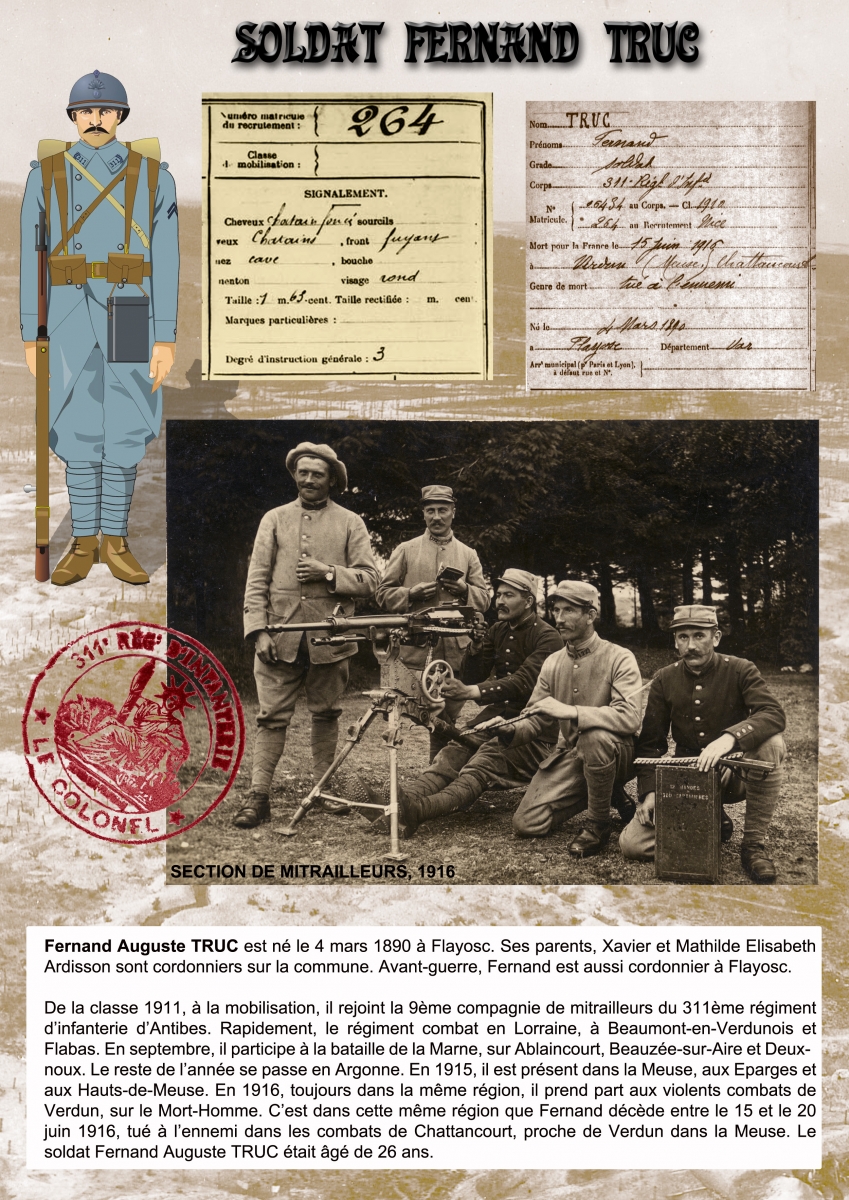 SOLDAT FERNAND TRUC
Numéro matricule
du recrutement :
264
Classe
de mobilisation :
SIGNALEMENT.
Cheveux chatain foncé sourcils
yeux Chatains , front fuyant
nez cave , bouche
menton visage rond
Taille : 1 m. 63 cent. Taille rectifiée : m. cent.
Marques particulières :
Degré d'instruction générale : 3
Nom TRUC
Prénoms Fernand
Grade soldat
Corps 311e Régt d'Infie
N° 06434 au Corps. — Cl. 1910
Matricule. 264 au Recrutement Nice
Mort pour la France le 15 juin 1916
à Verdun (Meuse) Chattancourt
Genre de mort tué à l'ennemi
Né le 4 Mars 1890
à Flayosc Département Var
Arrt municipal (pr Paris et Lyon),
à défaut rue et N°.
311
12 BANDES
300 CARTOUCHES
311e RÉGt D'INFANTERIE
★ LE COLONEL ★
SECTION DE MITRAILLEURS, 1916
Fernand Auguste TRUC est né le 4 mars 1890 à Flayosc. Ses parents, Xavier et Mathilde Elisabeth
Ardisson sont cordonniers sur la commune. Avant-guerre, Fernand est aussi cordonnier à Flayosc.
De la classe 1911, à la mobilisation, il rejoint la 9ème compagnie de mitrailleurs du 311ème régiment
d'infanterie d'Antibes. Rapidement, le régiment combat en Lorraine, à Beaumont-en-Verdunois et
Flabas. En septembre, il participe à la bataille de la Marne, sur Ablaincourt, Beauzée-sur-Aire et Deux-
noux. Le reste de l'année se passe en Argonne. En 1915, il est présent dans la Meuse, aux Eparges et
aux Hauts-de-Meuse. En 1916, toujours dans la même région, il prend part aux violents combats de
Verdun, sur le Mort-Homme. C'est dans cette même région que Fernand décède entre le 15 et le 20
juin 1916, tué à l'ennemi dans les combats de Chattancourt, proche de Verdun dans la Meuse. Le
soldat Fernand Auguste TRUC était âgé de 26 ans.